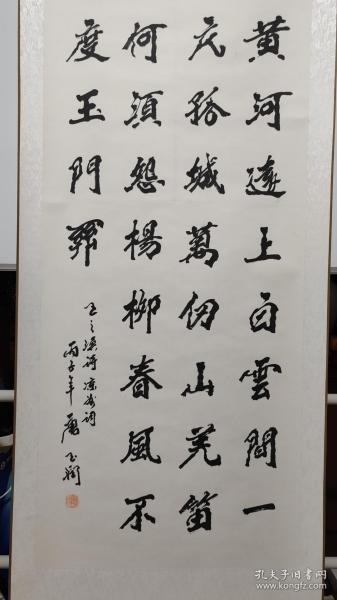 黄河遠上白雲間一
片孤城萬仞山羌笛
何須怨楊柳春風不
度玉門關
王之渙詩凉州詞
丙子年
孔夫子旧书网
www.kongfz.com